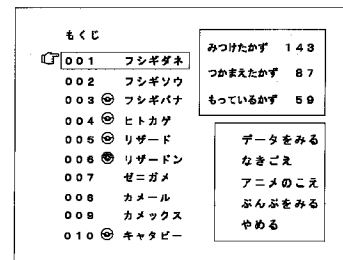 もくじ
001 フシギダネ
002 フシギソウ
003 フシギバナ
004 ヒトカゲ
005 リザード
006 リザードン
007 ゼニガメ
008 カメール
009 カメックス
010 キャタピー
みつけたかず 143
つかまえたかず 87
もっているかず 59
データをみる
なきごえ
アニメのこえ
ぶんぷをみる
やめる